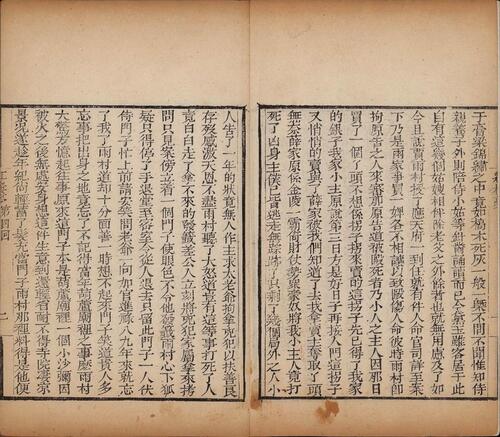 于膏粱錦繡之中竟如槁木死灰一般一槩不問不聞惟知侍
親養子外則陪侍小姑等針黹誦讀而已今黛玉雖客居于此
自有這幾個姑嫂相伴除老父之外餘者也就無用慮及了如
今且說賈雨村授了應天府一到任就有件人命官司詳至案
下乃是兩家爭買一婢各不相讓以致毆傷人命彼時雨村即
拘原告之人來審那原告道被毆死者乃小人之主人因那日
買了一個丫頭不想係拐子拐來賣的這拐子先已得了我家
的銀子我家小主原說第三日方是好日子再接入門這拐子
又悄悄的賣與了薛家被我們知道了去找拿賣主奪取丫頭
無奈薛家原係金陵一霸倚財仗勢衆豪奴將我小主人竟打
死了凶身主僕已皆逃走無踪跡了只剩了幾個局外之人小
人告了一年的狀竟無人作主求太老爺拘拿兇犯以扶善良
存歿感激天恩不盡雨村聽了大怒道豈有這等事打死了人
竟白白走了拿不來的發籤差公人立刻將兇犯家屬拿來拷
問只見案傍立着一個門子使眼色不令他發籤雨村心下狐
疑只得停了手退堂至密室令從人退去只留此門子一人伏
侍門子忙上前請安笑問老爺一向加官進祿八九年來就忘
了我了雨村道却十分面善一時想不起來門子笑道貴人多
忘事把出身之地竟忘了不記得當年葫蘆廟裡之事麽雨村
大驚方憶起往事原來這門子本是葫蘆廟裡一個小沙彌因
被火之後無處安身想這件生意到還輕省耐不得寺院淒凉
景况遂趁年紀尚輕蓄了髮充當門子雨村那裡料得是他便
第四回
二